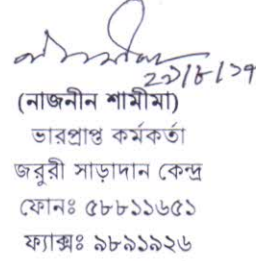 ২৯/৮/১৭
(নাজনীন শামীমা)
ভারপ্রাপ্ত কর্মকর্তা
জরুরী সাড়াদান কেন্দ্র
ফোনঃ ৫৮৮১১৬৫১
ফ্যাক্সঃ ৯৮৯১৯২৬